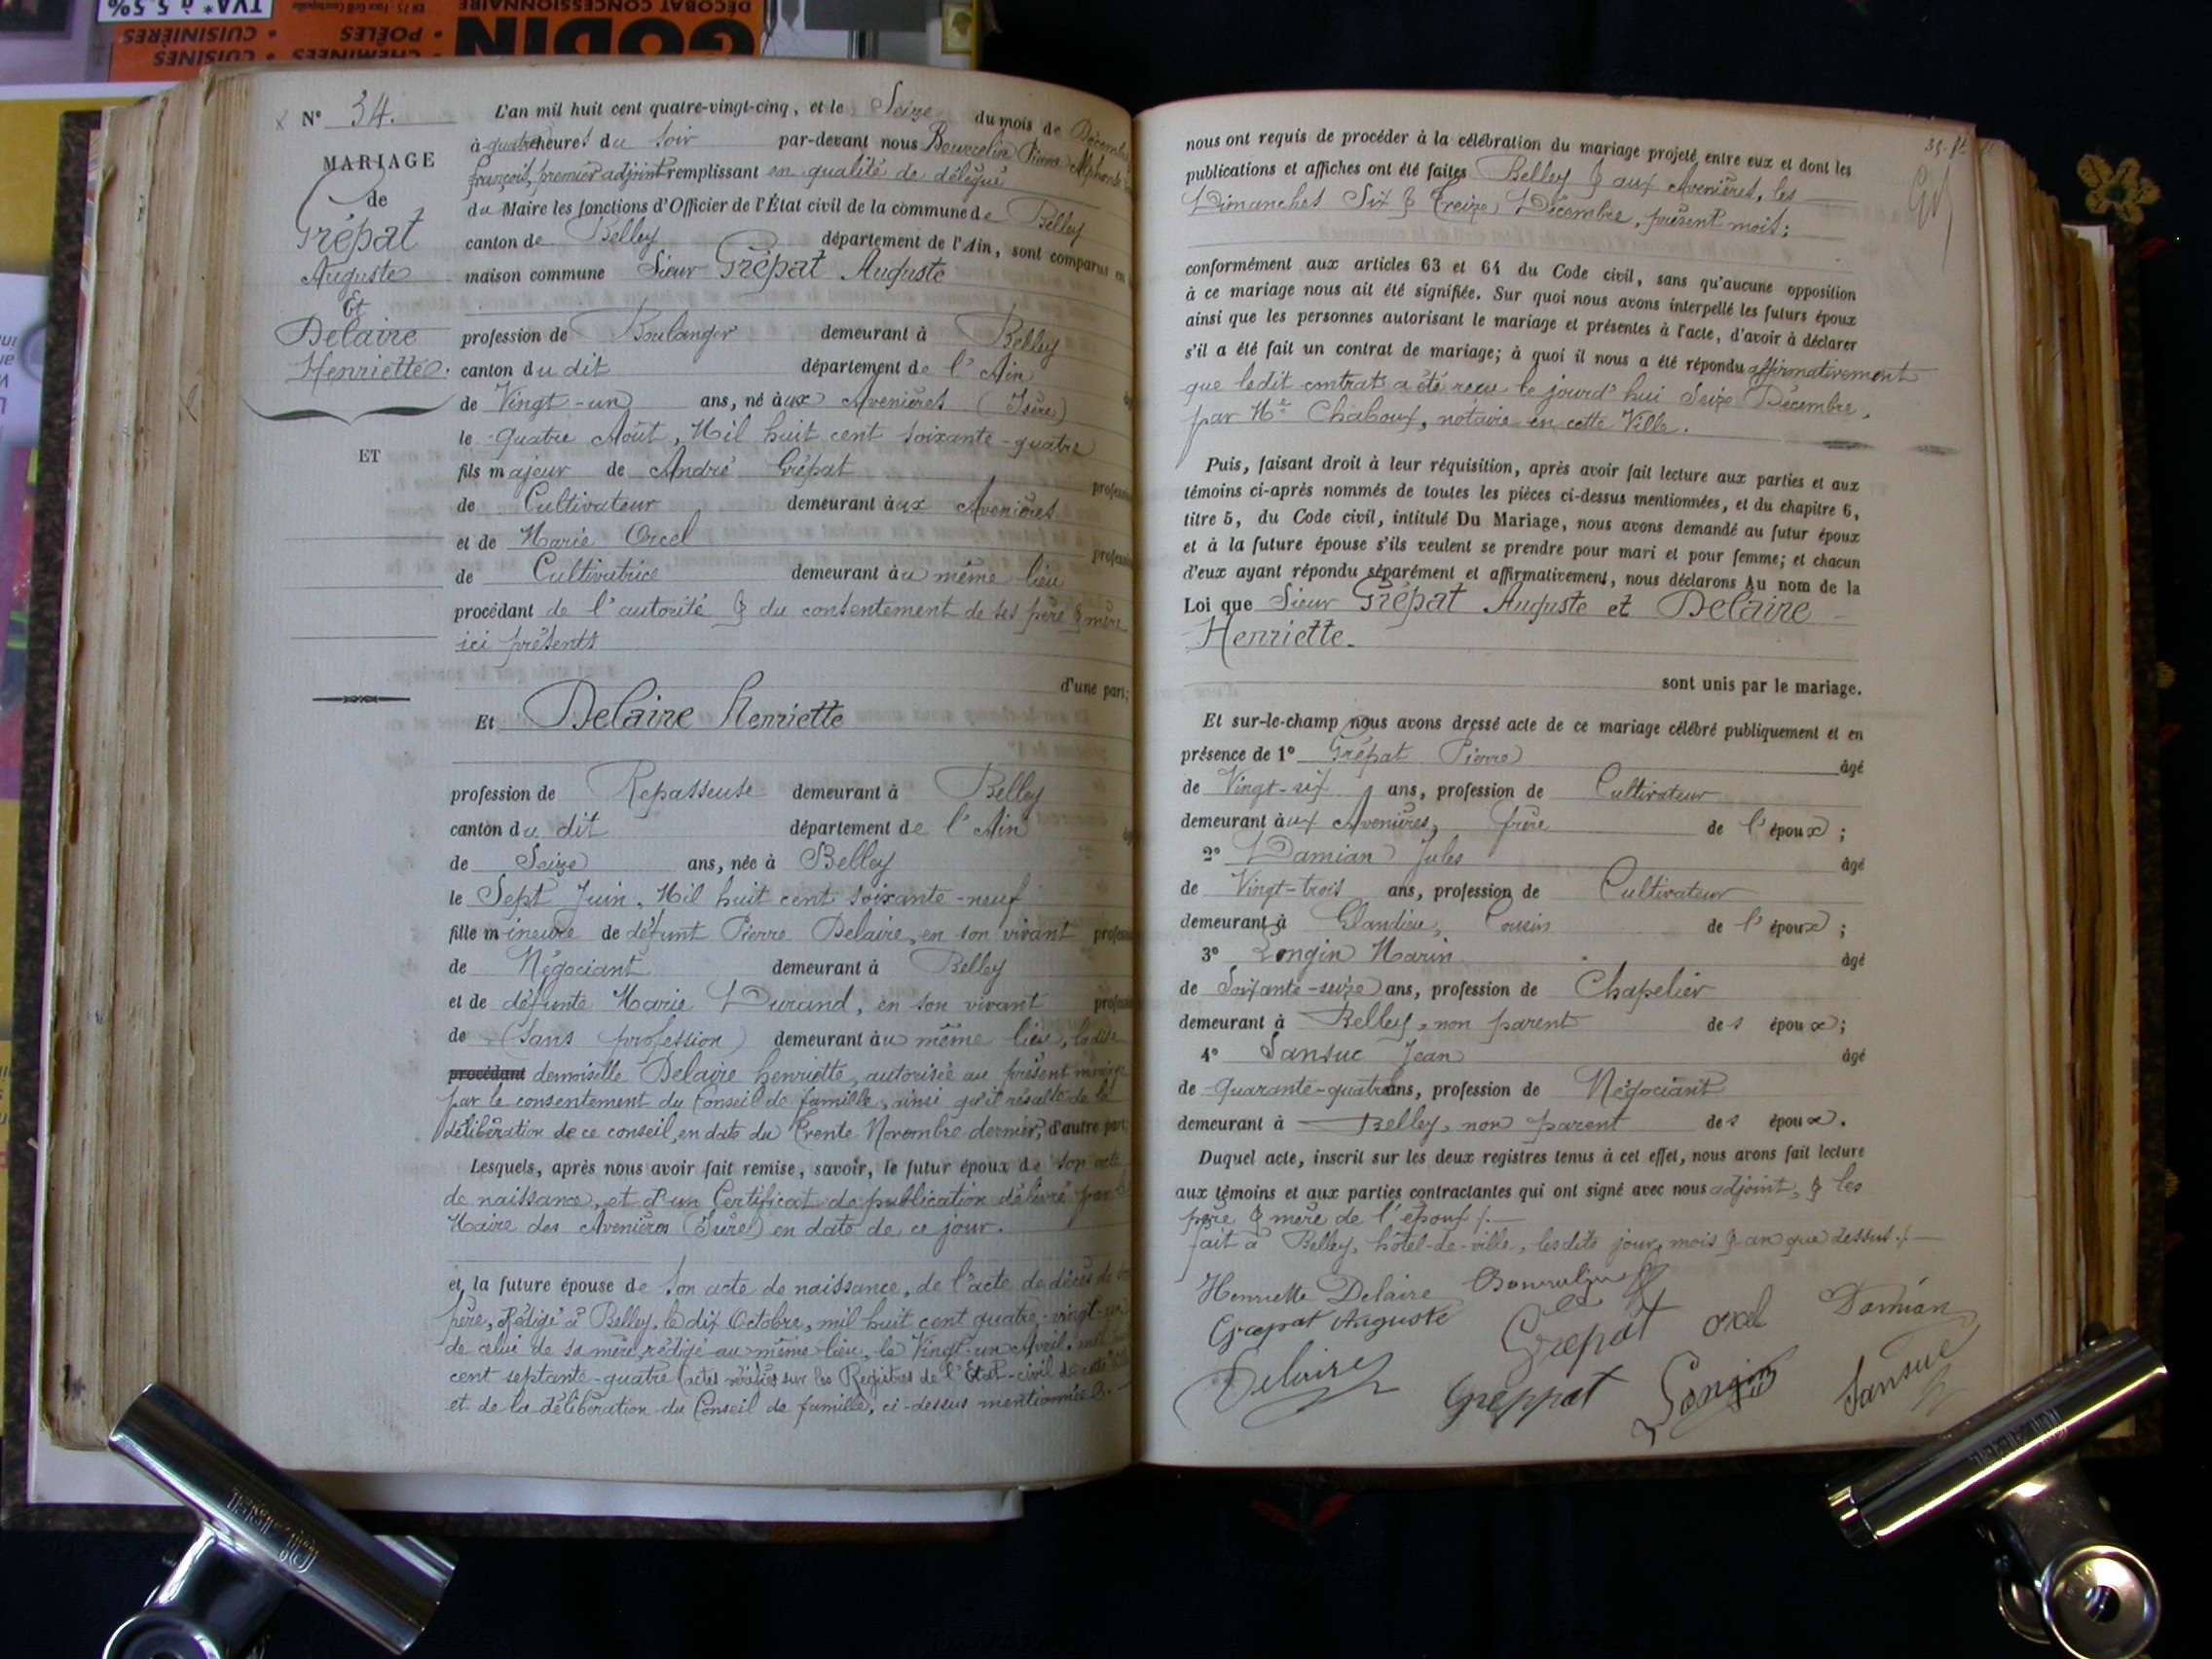 TVA* à 5,5%
DÉCORAT CONCESSIONNAIRE
GODIN
CUISINIÈRES
• POÊLES
• CUISINES
• CHEMINÉES
N° 34.
MARIAGE
de
Grépat
Auguste
Et
Delaire
Henriette.
ET
L'an mil huit cent quatre-vingt-cinq, et le Seize du mois de Décembre
à quatre heures du soir par-devant nous Bourcelin Pierre Alphonse
françois, premier adjoint remplissant en qualité de délégué
du Maire les fonctions d'Officier de l'État civil de la commune de Belley
canton de Belley département de l'Ain, sont comparus en
maison commune Sieur Grépat Auguste
profession de Boulanger demeurant à Belley
canton du dit département de l'Ain
de Vingt-un ans, né aux Avenières (Isère)
le quatre Août, Mil huit cent soixante-quatre
fils majeur de André Grépat profession
de Cultivateur demeurant aux Avenières
et de Marie Orcel profession
de Cultivatrice demeurant au même lieu
procédant de l'autorité & du consentement de ses père & mère
ici présents
d'une part;
Et Delaire Henriette
profession de Repasseuse demeurant à Belley
canton du dit département de l'Ain
de Seize ans, née à Belley
le Sept Juin, Mil huit cent soixante-neuf
fille mineure de défunt Pierre Delaire, en son vivant profession
de Négociant demeurant à Belley
et de défunte Marie Durand, en son vivant profession
de (sans profession) demeurant au même lieu, ladite
procédant demoiselle Delaire henriette, autorisée au présent mariage
par le consentement du Conseil de famille, ainsi qu'il résulte de la
délibération de ce conseil, en date du Trente Novembre dernier, d'autre part,
Lesquels, après nous avoir fait remise, savoir, le futur époux de son acte
de naissance, et d'un Certificat de publication délivré par le
Maire des Avenières (Isère) en date de ce jour.
et la future épouse de son acte de naissance, de l'acte de décès de son
père, rédigé à Belley, le dix Octobre, mil huit cent quatre-vingt-un
de celui de sa mère, rédigé au même lieu, le Vingt-un Avril, mil huit
cent septante-quatre (actes vérifiés sur les Registres de l'Etat-civil de cette
et de la délibération du Conseil de famille, ci-dessus mentionnée.
nous ont requis de procéder à la célébration du mariage projeté entre eux et dont les
publications et affiches ont été faites Belley & aux Avenières, les
Dimanches Six & Treize Décembre, présent mois;
conformément aux articles 63 et 64 du Code civil, sans qu'aucune opposition
à ce mariage nous ait été signifiée. Sur quoi nous avons interpellé les futurs époux
ainsi que les personnes autorisant le mariage et présentes à l'acte, d'avoir à déclarer
s'il a été fait un contrat de mariage; à quoi il nous a été répondu affirmativement
que ledit contrat a été reçu le jourd'hui Seize Décembre,
par Me Chaboux, notaire en cette Ville.
Puis, faisant droit à leur réquisition, après avoir fait lecture aux parties et aux
témoins ci-après nommés de toutes les pièces ci-dessus mentionnées, et du chapitre 6,
titre 5, du Code civil, intitulé Du Mariage, nous avons demandé au futur époux
et à la future épouse s'ils veulent se prendre pour mari et pour femme; et chacun
d'eux ayant répondu séparément et affirmativement, nous déclarons Au nom de la
Loi que Sieur Grépat Auguste et Delaire
Henriette.
sont unis par le mariage.
Et sur-le-champ nous avons dressé acte de ce mariage célébré publiquement et en
présence de 1° Grépat Pierre âgé
de Vingt-six ans, profession de Cultivateur
demeurant aux Avenières, frère de l'époux;
2° Damian Jules âgé
de Vingt-trois ans, profession de Cultivateur
demeurant à Glandieu, Cousin de l'époux;
3° Longin Marin âgé
de Soixante-seize ans, profession de Chapelier
demeurant à Belley, non parent des époux;
4° Sansuc Jean âgé
de quarante-quatre ans, profession de Négociant
demeurant à Belley, non parent des époux.
Duquel acte, inscrit sur les deux registres tenus à cet effet, nous avons fait lecture
aux témoins et aux parties contractantes qui ont signé avec nous adjoint, & les
père & mère de l'époux /.
fait à Belley, hôtel-de-ville, lesdits jour, mois & an que dessus./.
Henriette Delaire
Grepat Auguste Grepat orcel Damian
Delaire Greppat Longin Sansuc